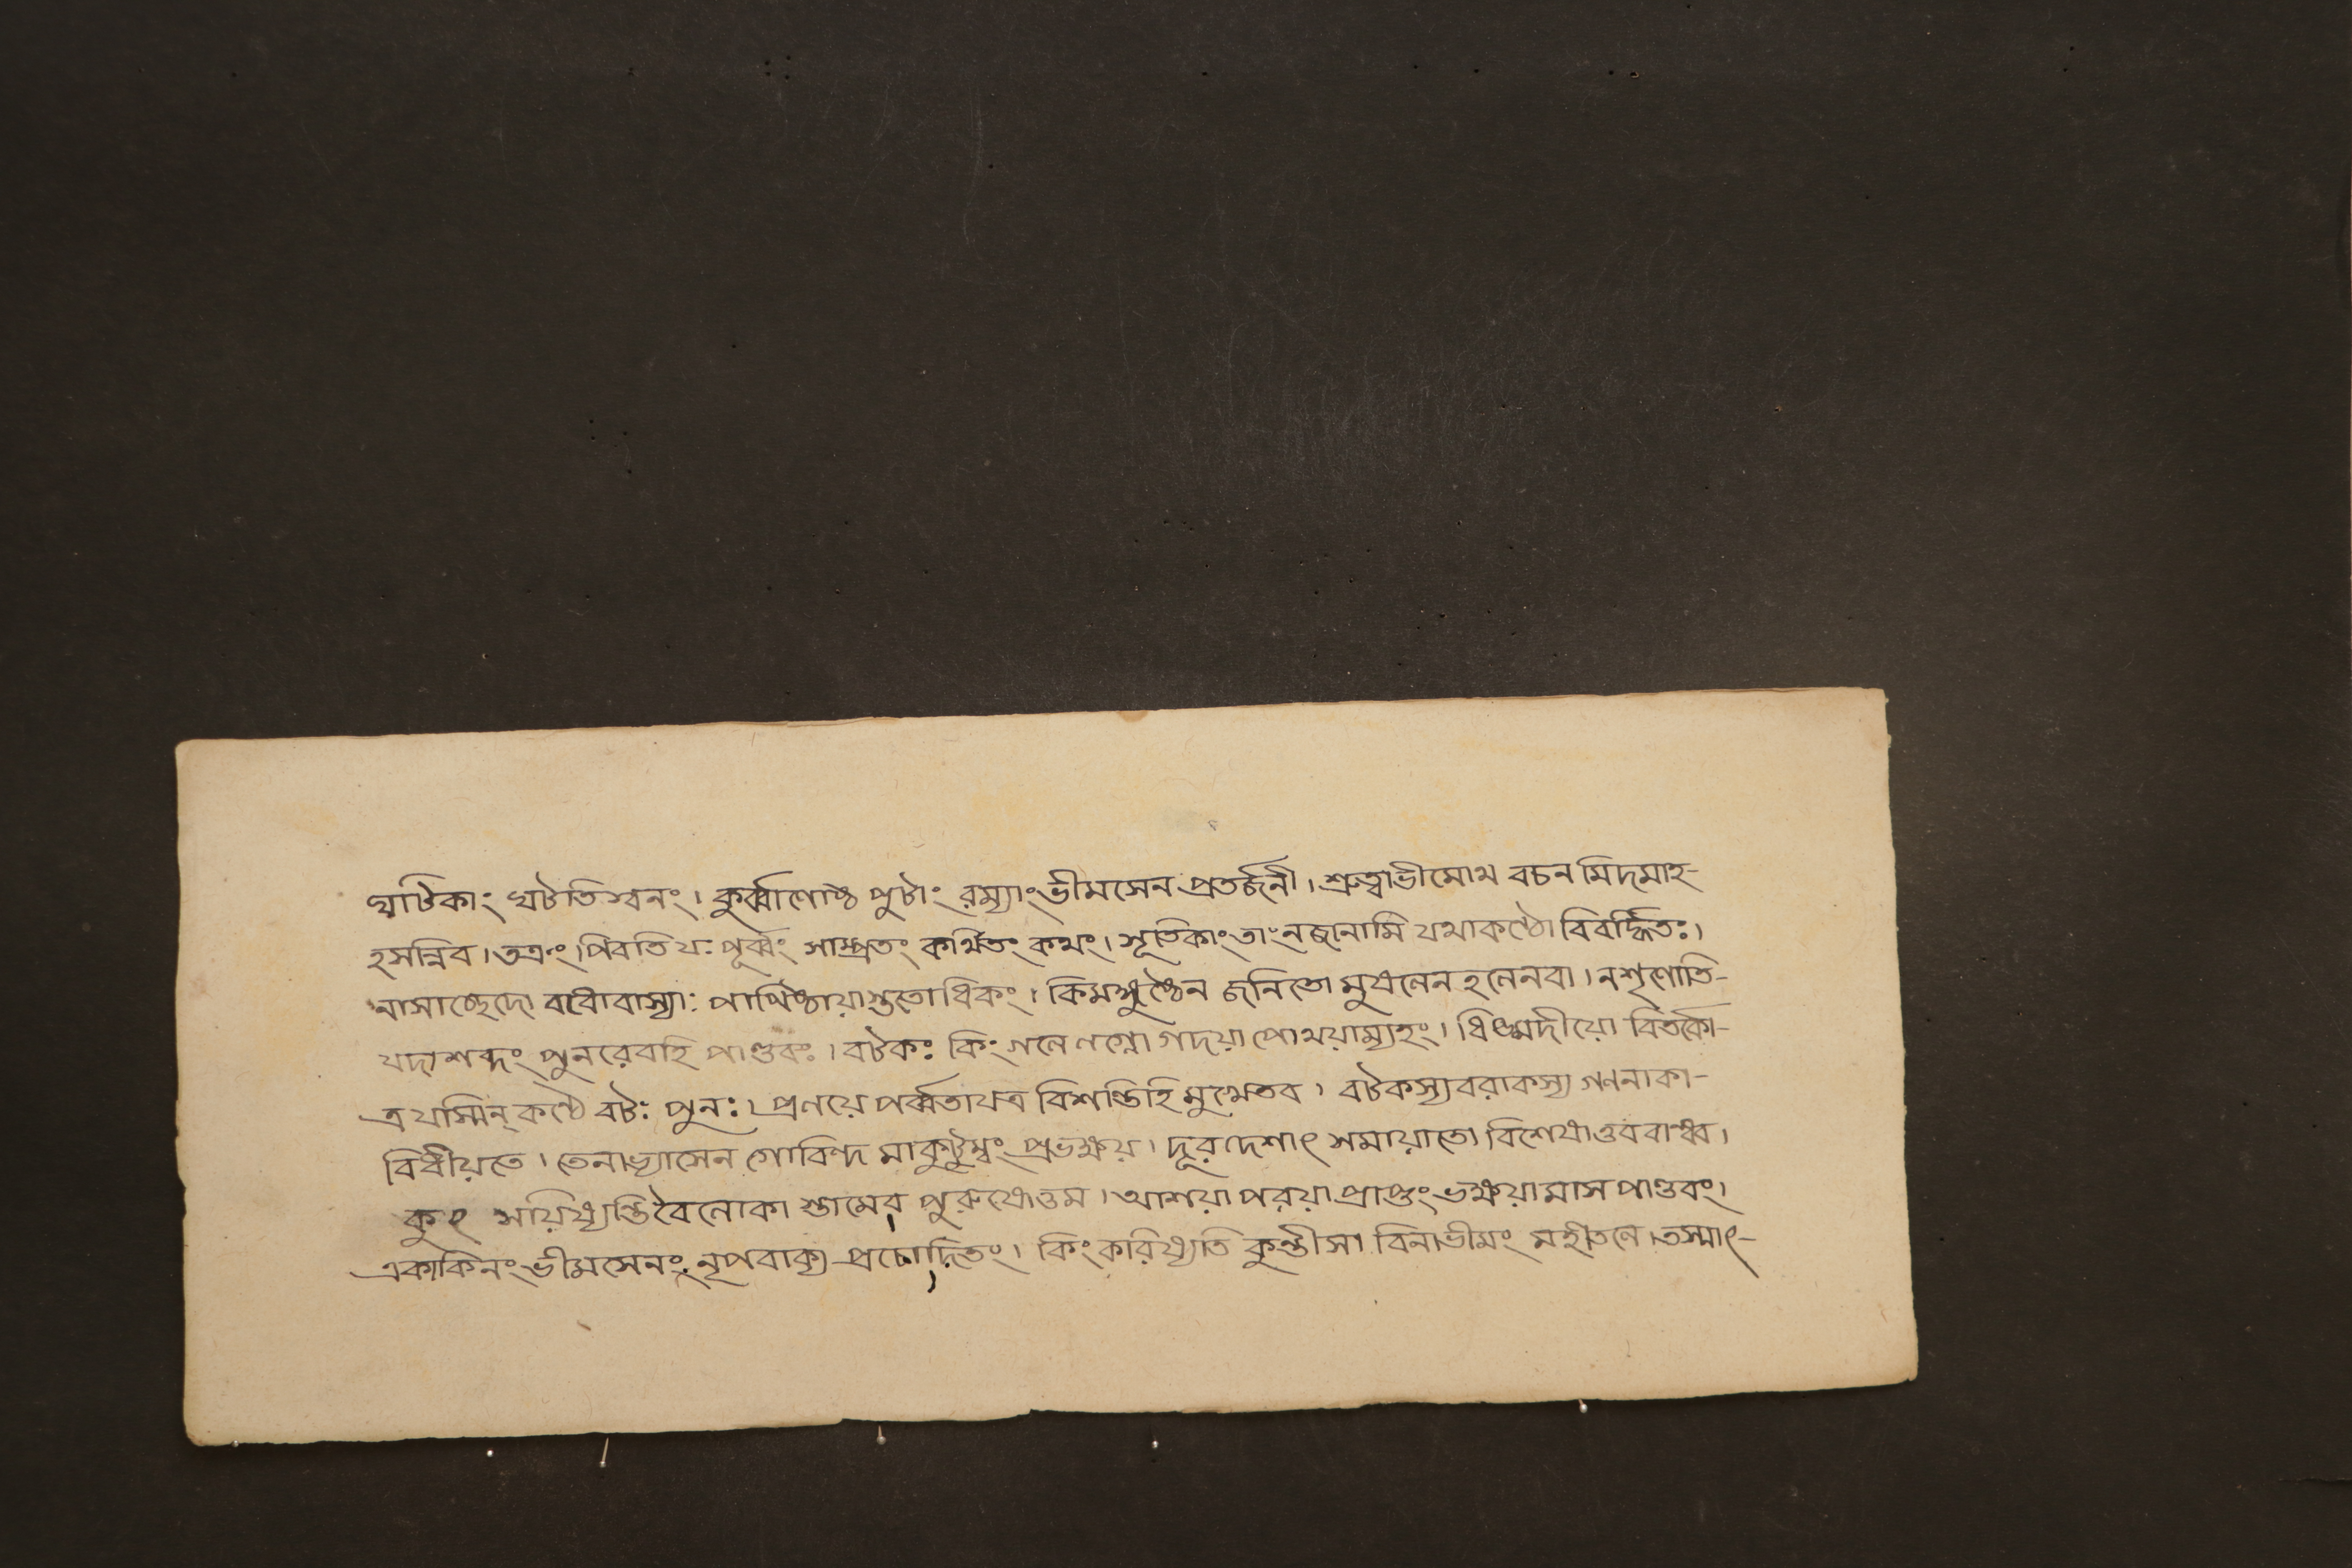 ঘাটিকাং খটতিশ্বনং। কুর্ব্বাণোষ্ঠ পুটাং রম্যাং ভীমসেন প্রতর্জনী। শ্রুত্বাভীমোথ বচন মিদমাহ-
হসন্নিব। তত্রং পিবতি যঃ পূর্ব্বং সাম্প্রতং কথিতং কথং। সূতিকাং তাং নজানামি যথাকণ্ঠো বিবর্দ্ধিতঃ।
নাসাচ্ছেদো বধোবাস্যাঃ পাপিষ্ঠায়াস্ততোধিকং। কিমঙ্গুষ্ঠেন জনিতো মুষলেন হলেনবা। নশৃণোতি-
যদাশব্দং পুনরেবহি পাণ্ডবঃ। বটকঃ কিং গলে লগ্নো গদয়া পোথয়াম্যহং। ধিঙ্মদীয়ো বিতর্কো-
ত্র যস্মিন্ কণ্ঠে বটঃ পুনঃ। প্রলয়ে পর্ব্বতাযত্র বিশন্তিহি মুখেতব। বটকস্যবরাকস্য গণনাকা-
বিধীয়তে। তেনাভ্যাসেন গোবিন্দ মাকুটুম্বং প্রভক্ষয়। দূরদেশাৎ সমায়াতো বিশেষাত্তববান্ধব।
কুৎ সয়িষ্যন্তিবৈলোকা স্তামেব পুরুষোত্তম। আশয়া পরয়া প্রাপ্তং ভক্ষয়ামাস পাণ্ডবং।
একাকিনং ভীমসেনং নৃপবাক্য প্রচোদিতং। কিং করিষ্যতি কুন্তীসা বিনাভীমং মহীতলে। তস্মাৎ-